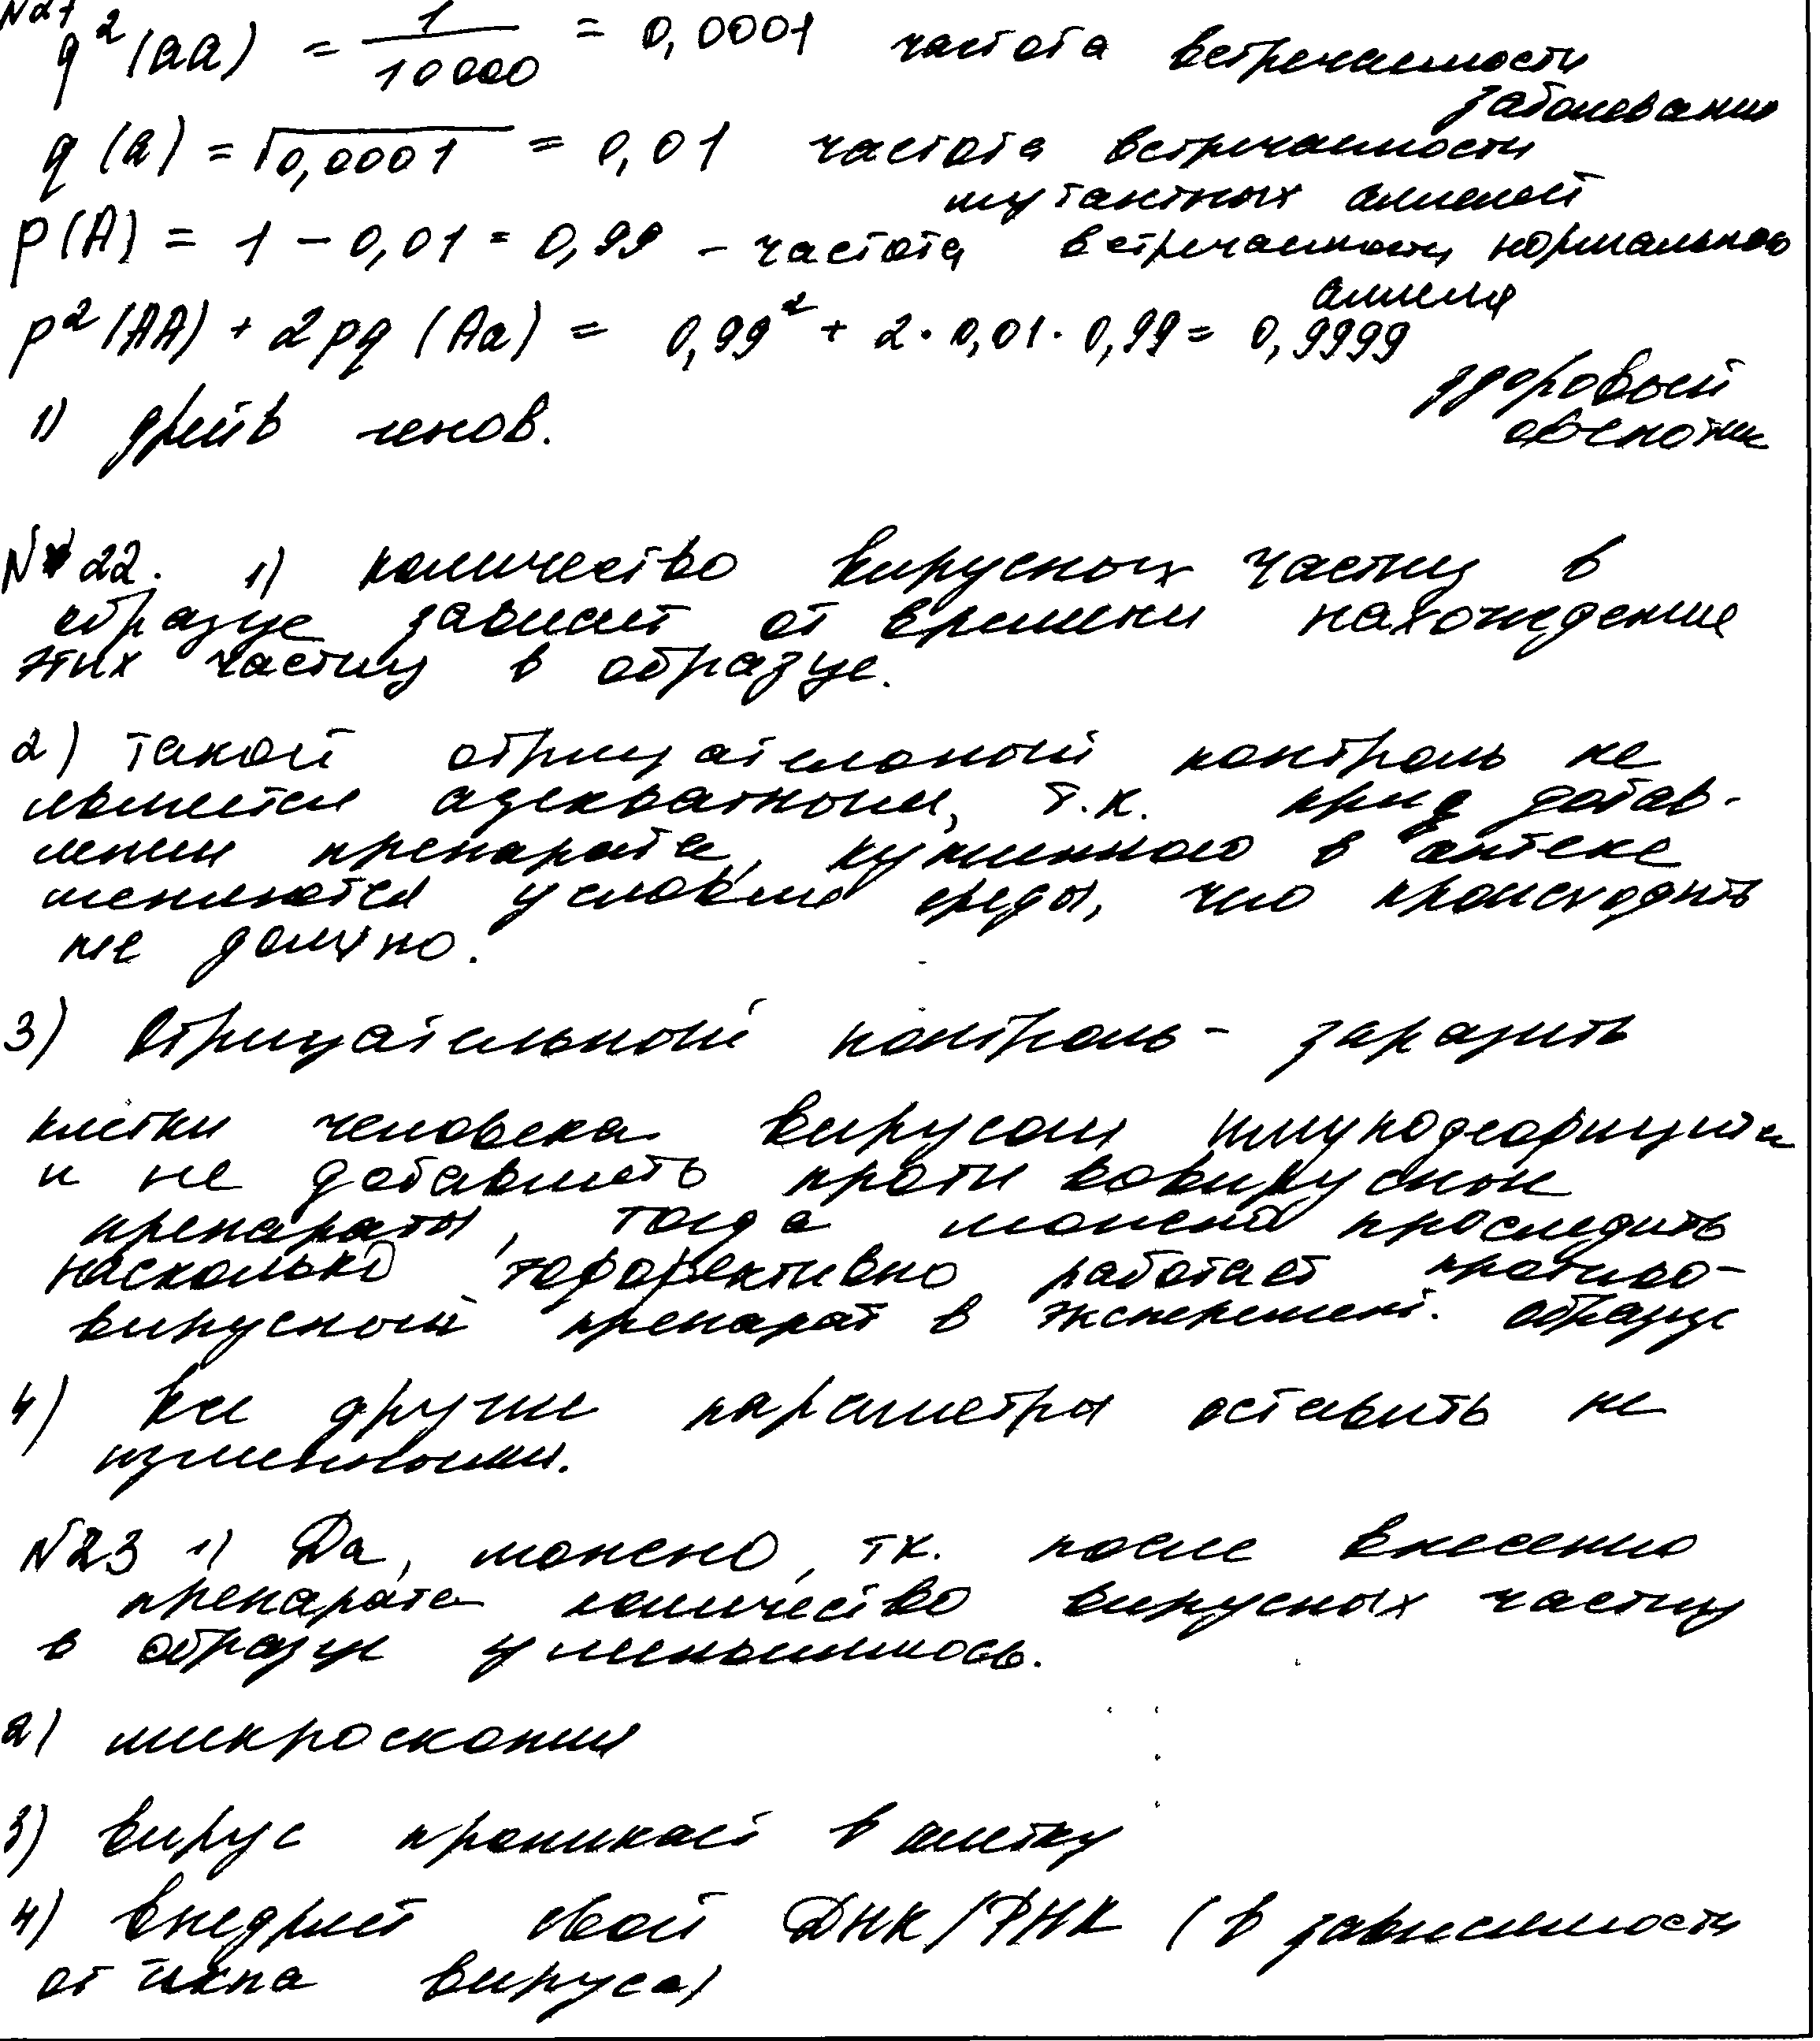 N27
q²(аа) = 1/10000 = 0,0001 частота встречаемости
заболевания
q(а) = √0,0001 = 0,01 частота встречаемости
мутантных аллелей
p(А) = 1 - 0,01 = 0,99 - частота встречаемости нормального
аллеля
p²(АА) + 2pq(Аа) = 0,99² + 2·0,01·0,99 = 0,9999
здоровый
фенотип
1) дрейв генов.
N22. 1) количество вирусных частиц в
образце зависит от времени нахождение
этих частиц в образце.
2) такой отрицательный контроль не
является адекватным, т.к. при добав-
лении препарата, купленного в аптеке
меняются условия среды, чего происходить
не должно.
3) Отрицательный контроль - заразить
клетки человека вирусом имунодефицита
и не добавлять противовирусные
препараты, тогда можно проследить
насколько эффективно работает противо-
вирусный препарат в эксперемент. образце
4) все другие параметры оставить не
изменными.
N23 1) Да, можно, тк. после внесения
препарата количество вирусных частиц
в образце уменьшилось.
2) микроскопия
3) вирус проникает в клетку
4) внедряет свой ДНК/РНК (в зависимости
от типа вируса)